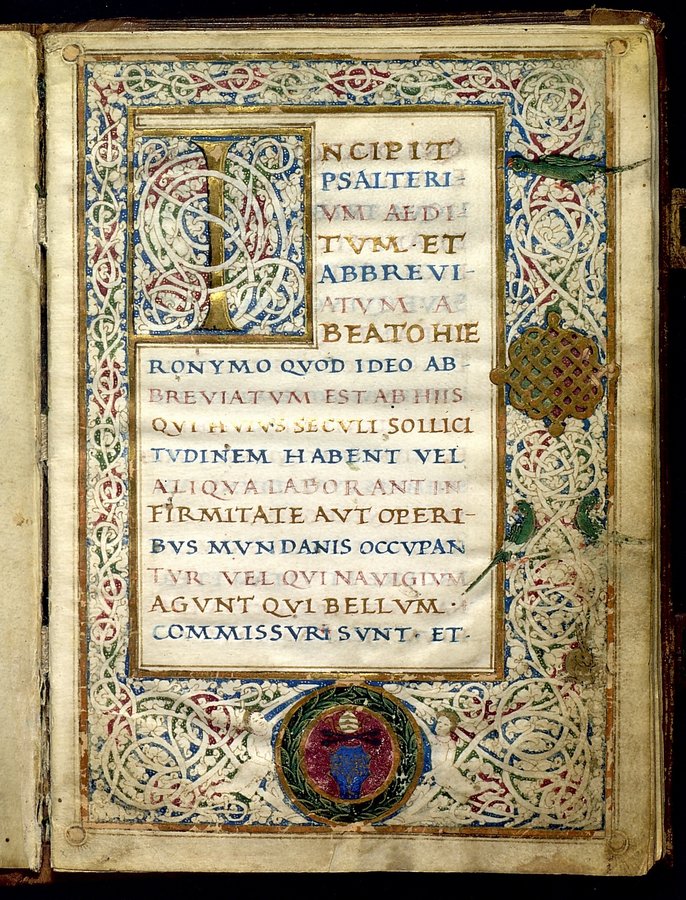 INCIPIT
PSALTERI-
VM AEDI
TVM· ET
ABBREVI-
ATVM A
BEATO HIE
RONYMO QVOD IDEO AB-
BREVIATVM EST AB HIIS
QVI HVIVS SECVLI SOLLICI
TVDINEM HABENT VEL
ALIQVA LABORANT IN
FIRMITATE AVT OPERI-
BVS MVNDANIS OCCVPAN
TVR VEL QVI NAVIGIVM
AGVNT QVI BELLVM·
COMMISSVRI SVNT· ET·